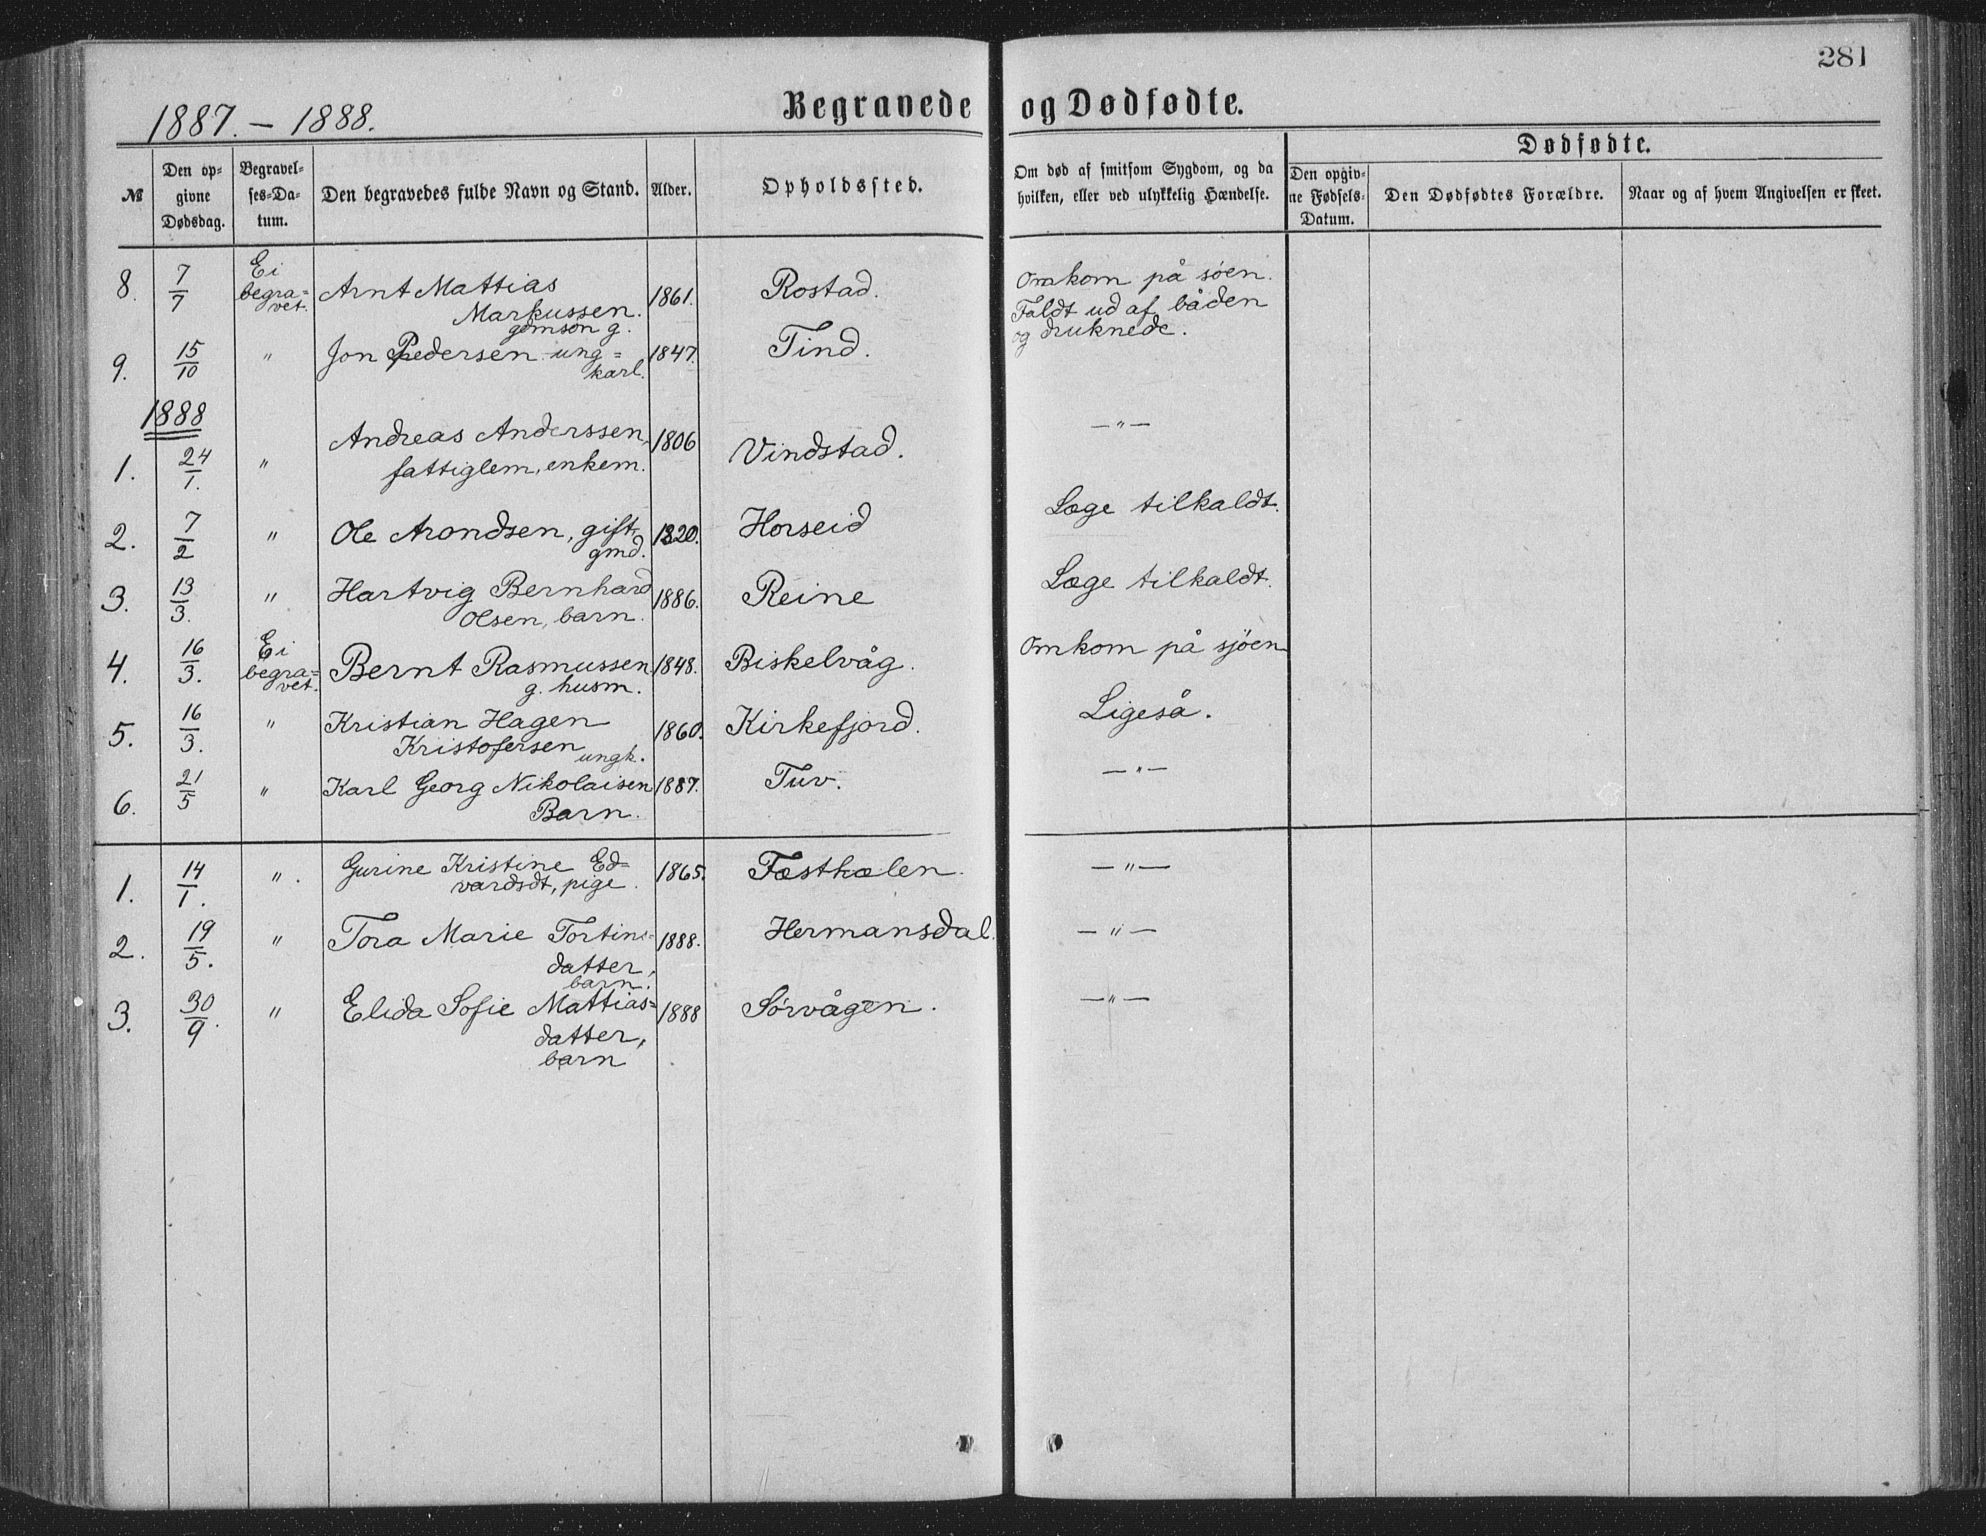 281
1887. - 1888.
Begravede og Dødfødte.
Dødfødte.
№
Den op-
givne
Dødsdag.
Begravel-
ses-Da-
tum.
Den begravedes fulde Navn og Stand.
Alder.
Opholdssted.
Om død af smitsom Sygdom, og da
hvilken, eller ved ulykkelig Hændelse.
Den opgiv-
ne Fødsels-
Datum.
Den Dødfødtes Forældre.
Naar og af hvem Angivelsen er skeet.
8. 7/7 Ei begra=vet. Arnt Mattias 1861. Rostad. Omkom på søen.
Markussen. Faldt ud af båden
gdmsøn g. og druknede.
9. 15/10 " Jon Pedersen ung= 1847. Tind.
karl.
1888
1. 24/1. " Andreas Anderssen, 1806 Vindstad. —"—
fattiglem, enkem.
2. 7/2 " Ole Arondsen, gift, 1820. Horseid Læge tilkaldt.
gmd.
3. 13/3. " Hartvig Bernhard 1886. Reine Læge tilkaldt.
Olsen, barn.
4. 16/3. Ei begra=vet. Bernt Rasmussen 1848. Biskelvåg. Omkom på sjøen
g. husm.
5. 16/3. " Kristian Hagen 1860. Kirkefjord. Ligeså.
Kristofersen ungk.
6. 21/5 " Karl Georg Nikolaisen 1887. Tuv. —"—
Barn.
1. 14/1. ". Gurine Kristine Ed= 1865. Festhælen. —"—
vardsdt, pige.
2. 19/5. " Tora Marie Tortins= 1888. Hermansdal. —"—
datter,
barn.
3. 30/9. " Elida Sofie Mattias= 1888 Sørvågen. —"—
datter,
barn